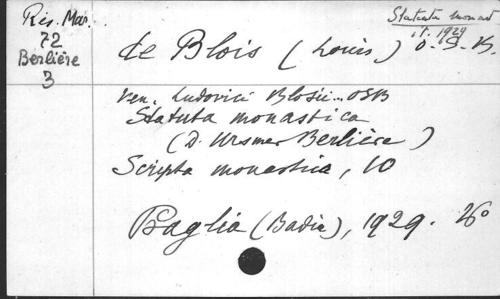 Rés. Mar.
72
Berlière
3
Statuta monast.
1929
de Blois (Louis) O.S.B.
ven. Ludovici Blosii... OSB
Statuta monastica
(D. Ursmer Berlière)
Scripta monastica, 10
Praglia (Badia), 1929. 26°